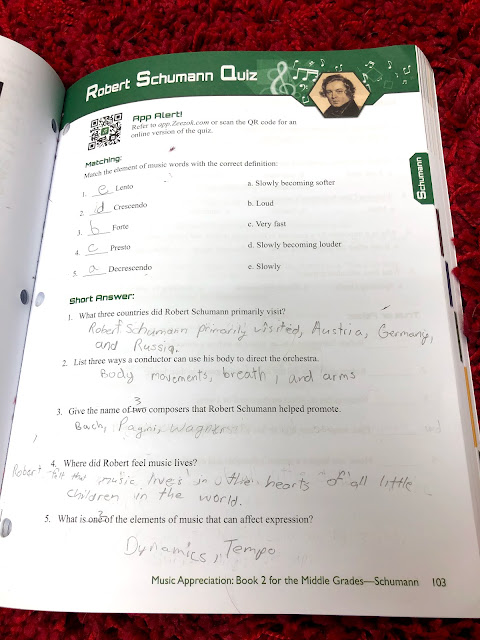 Robert Schumann Quiz
App Alert!
Refer to app.Zeezok.com or scan the QR code for an
online version of the quiz.
Schumann
Matching:
Match the element of music words with the correct definition:
1. e Lento a. Slowly becoming softer
2. d Crescendo b. Loud
3. b Forte c. Very fast
4. c Presto d. Slowly becoming louder
5. a Decrescendo e. Slowly
Short Answer:
1. What three countries did Robert Schumann primarily visit?
Robert Schumann primarily visited, Austria, Germany,
and Russia.
2. List three ways a conductor can use his body to direct the orchestra.
Body movements, breath, and arms
3
3. Give the name of two composers that Robert Schumann helped promote.
Bach, Pagni, Wagner
4. Where did Robert feel music lives?
Robert felt that music lives in the hearts of all little
children in the world.
2
5. What is one of the elements of music that can affect expression?
Dynamics, Tempo
Music Appreciation: Book 2 for the Middle Grades—Schumann 103